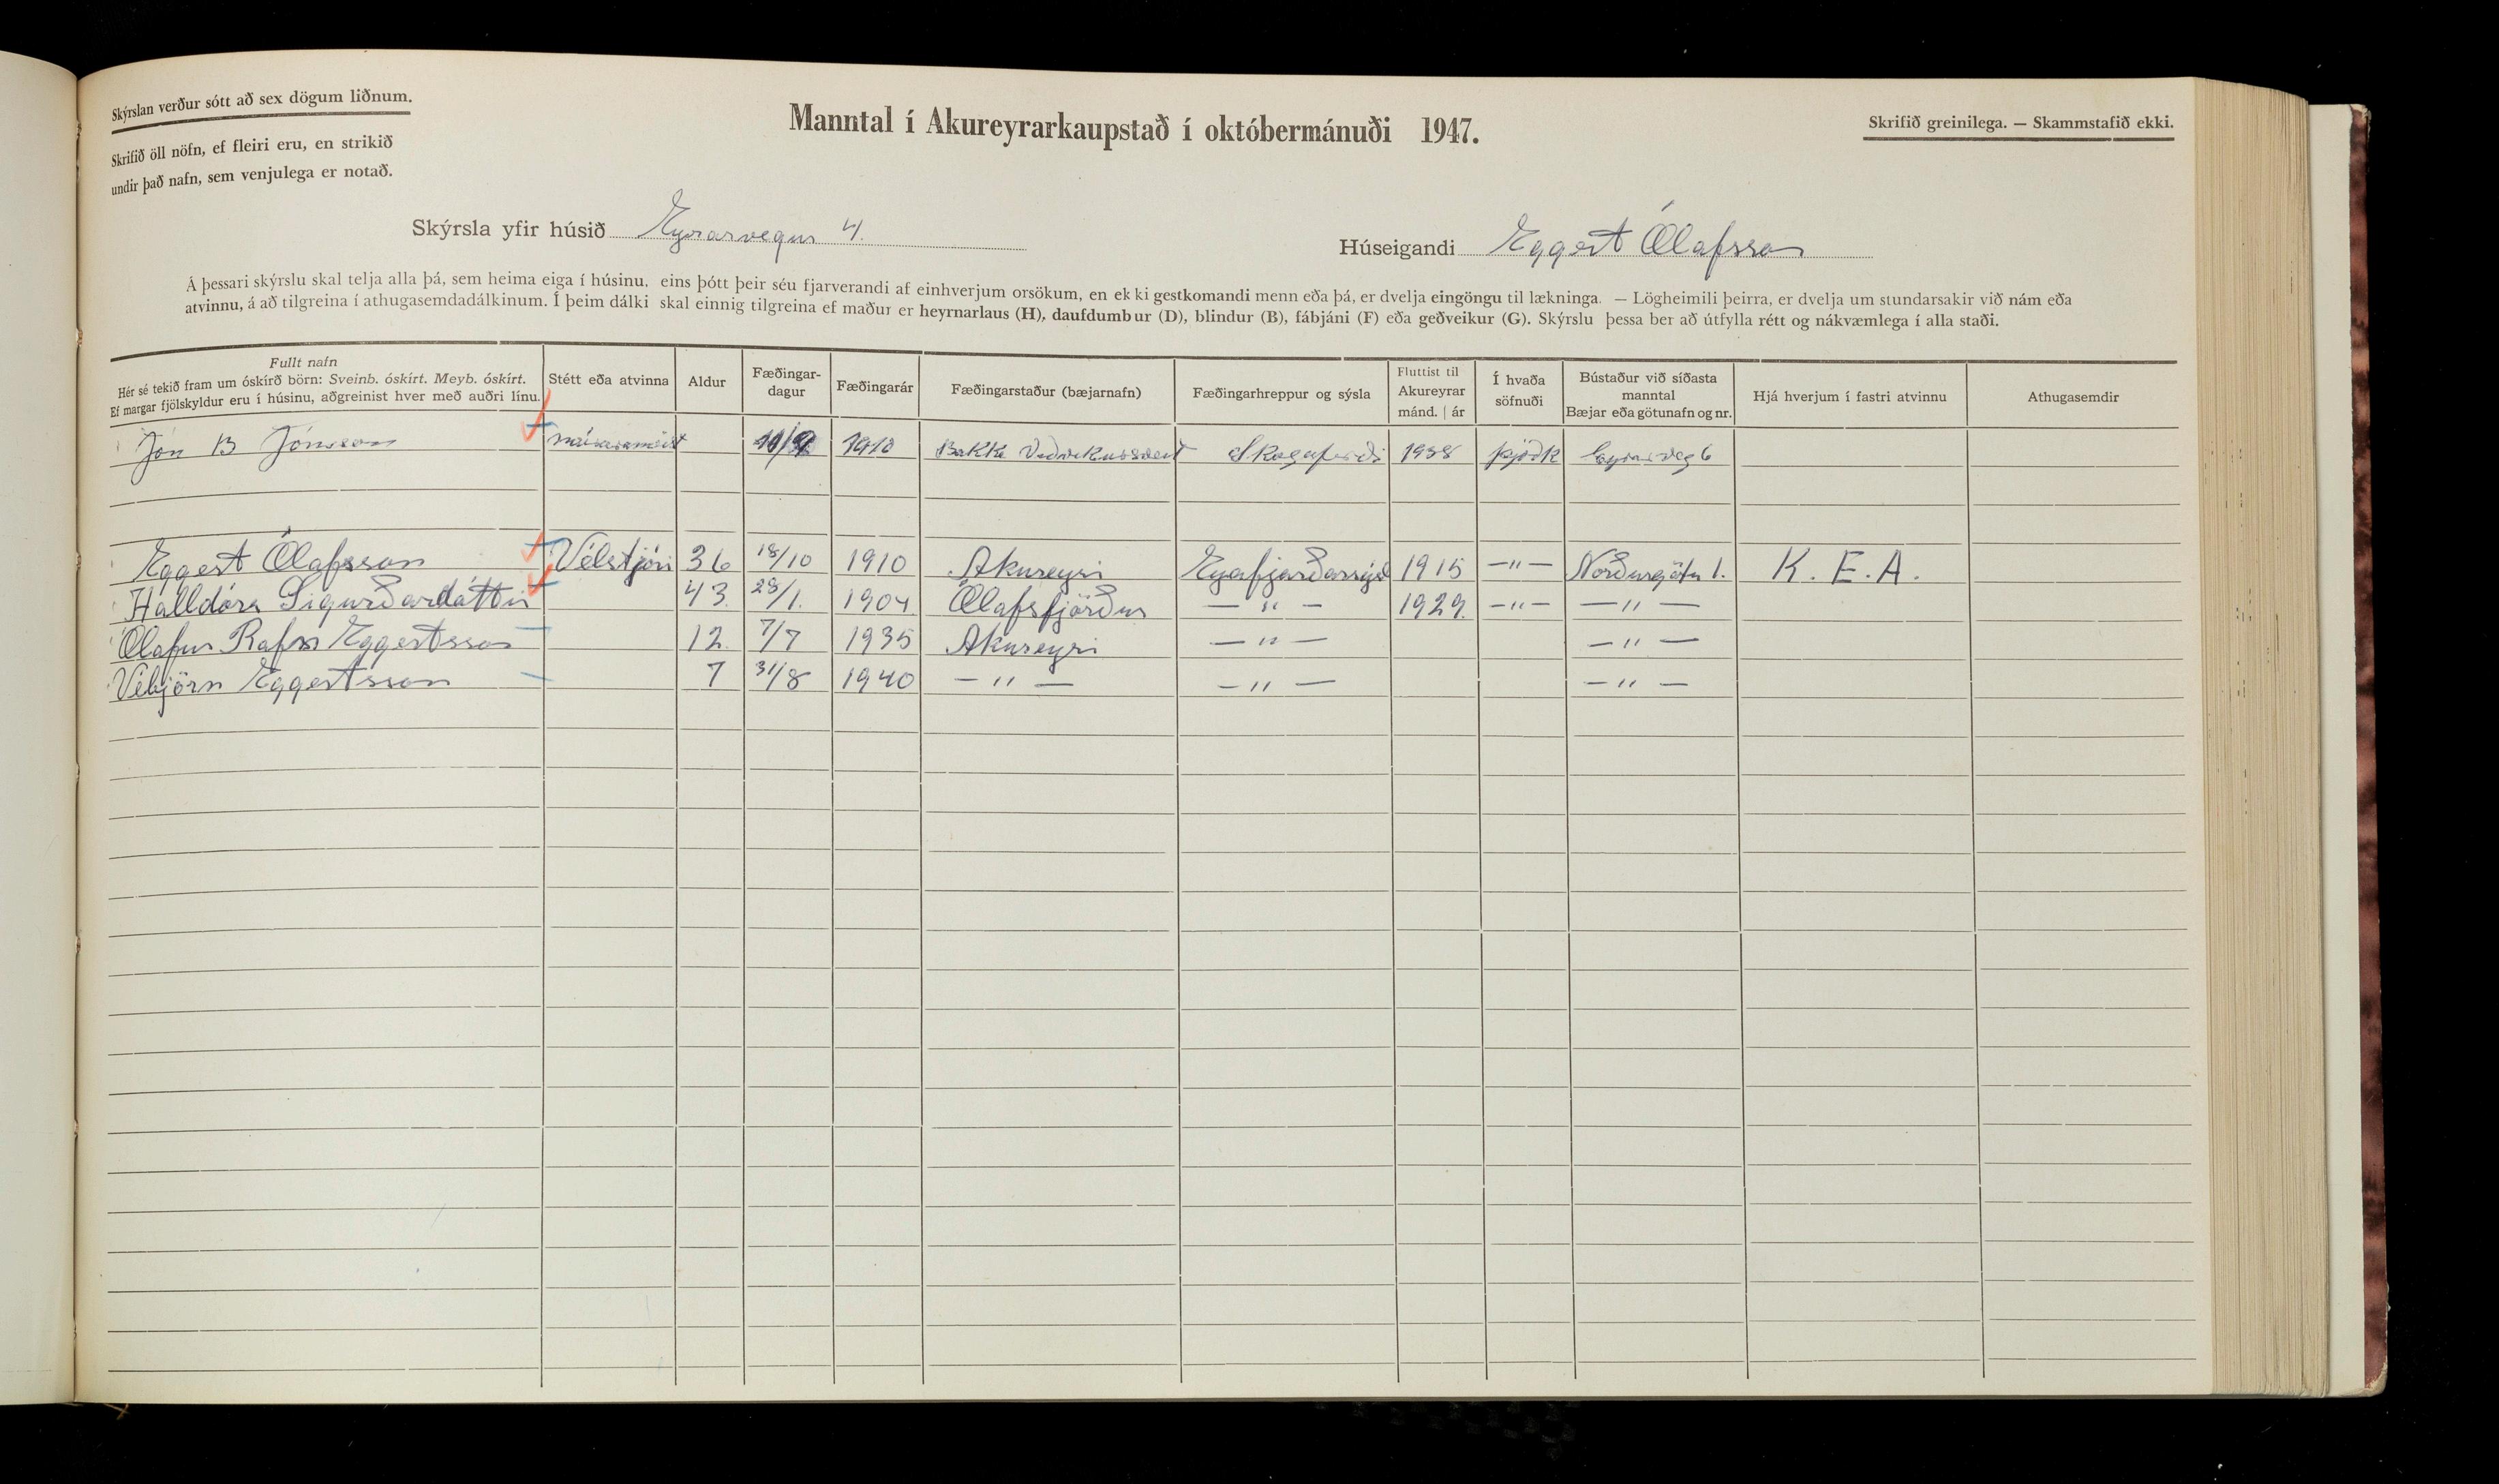 Skýrslan verður sótt að sex dögum liðnum.
Skrifið öll nöfn, ef fleiri eru, en strikið
undir það nafn, sem venjulega er notað.
Manntal í Akureyrarkaupstað í októbermánuði 1947.
Skrifið greinilega. — Skammstafið ekki.
Skýrsla yfir húsið Eyrarvegur 4.
Húseigandi Eggert Ólafsson
Á þessari skýrslu skal telja alla þá, sem heima eiga í húsinu, eins þótt þeir séu fjarverandi af einhverjum orsökum, en ekki gestkomandi menn eða þá, er dvelja eingöngu til lækninga. — Lögheimili þeirra, er dvelja um stundarsakir við nám eða
atvinnu, á að tilgreina í athugasemdadálkinum. Í þeim dálki skal einnig tilgreina ef maður er heyrnarlaus (H), daufdumbur (D), blindur (B), fábjáni (F) eða geðveikur (G). Skýrslu þessa ber að útfylla rétt og nákvæmlega í alla staði.
Fullt nafn
Hér sé tekið fram um óskírð börn: Sveinb. óskírt. Meyb. óskírt.
Ef margar fjölskyldur eru í húsinu, aðgreinist hver með auðri línu.
Stétt eða atvinna
Aldur
Fæðingar-
dagur
Fæðingarár
Fæðingarstaður (bæjarnafn)
Fæðingarhreppur og sýsla
Fluttist til
Akureyrar
mánd. | ár
Í hvaða
söfnuði
Bústaður við síðasta
manntal
Bæjar eða götunafn og nr.
Hjá hverjum í fastri atvinnu
Athugasemdir
Jón B Jónsson 1910 Bakka Skagafirði 1938 þjóðk Eyrarveg 6
Eggert Ólafsson Vélstjóri 36 18/10 1910 Akureyri Eyafjarðarsýsl 1915 —"— Norðurgötu 1. K. E. A.
Halldóra Sigurðardóttir 43. 28/1. 1904 Ólafsfjörður — " — 1929. —"— — " —
Ólafur Rafn Eggertsson 12. 7/7 1935 Akureyri — " — — " —
Vébjörn Eggertsson 7 31/8 1940 — " — — " — — " —